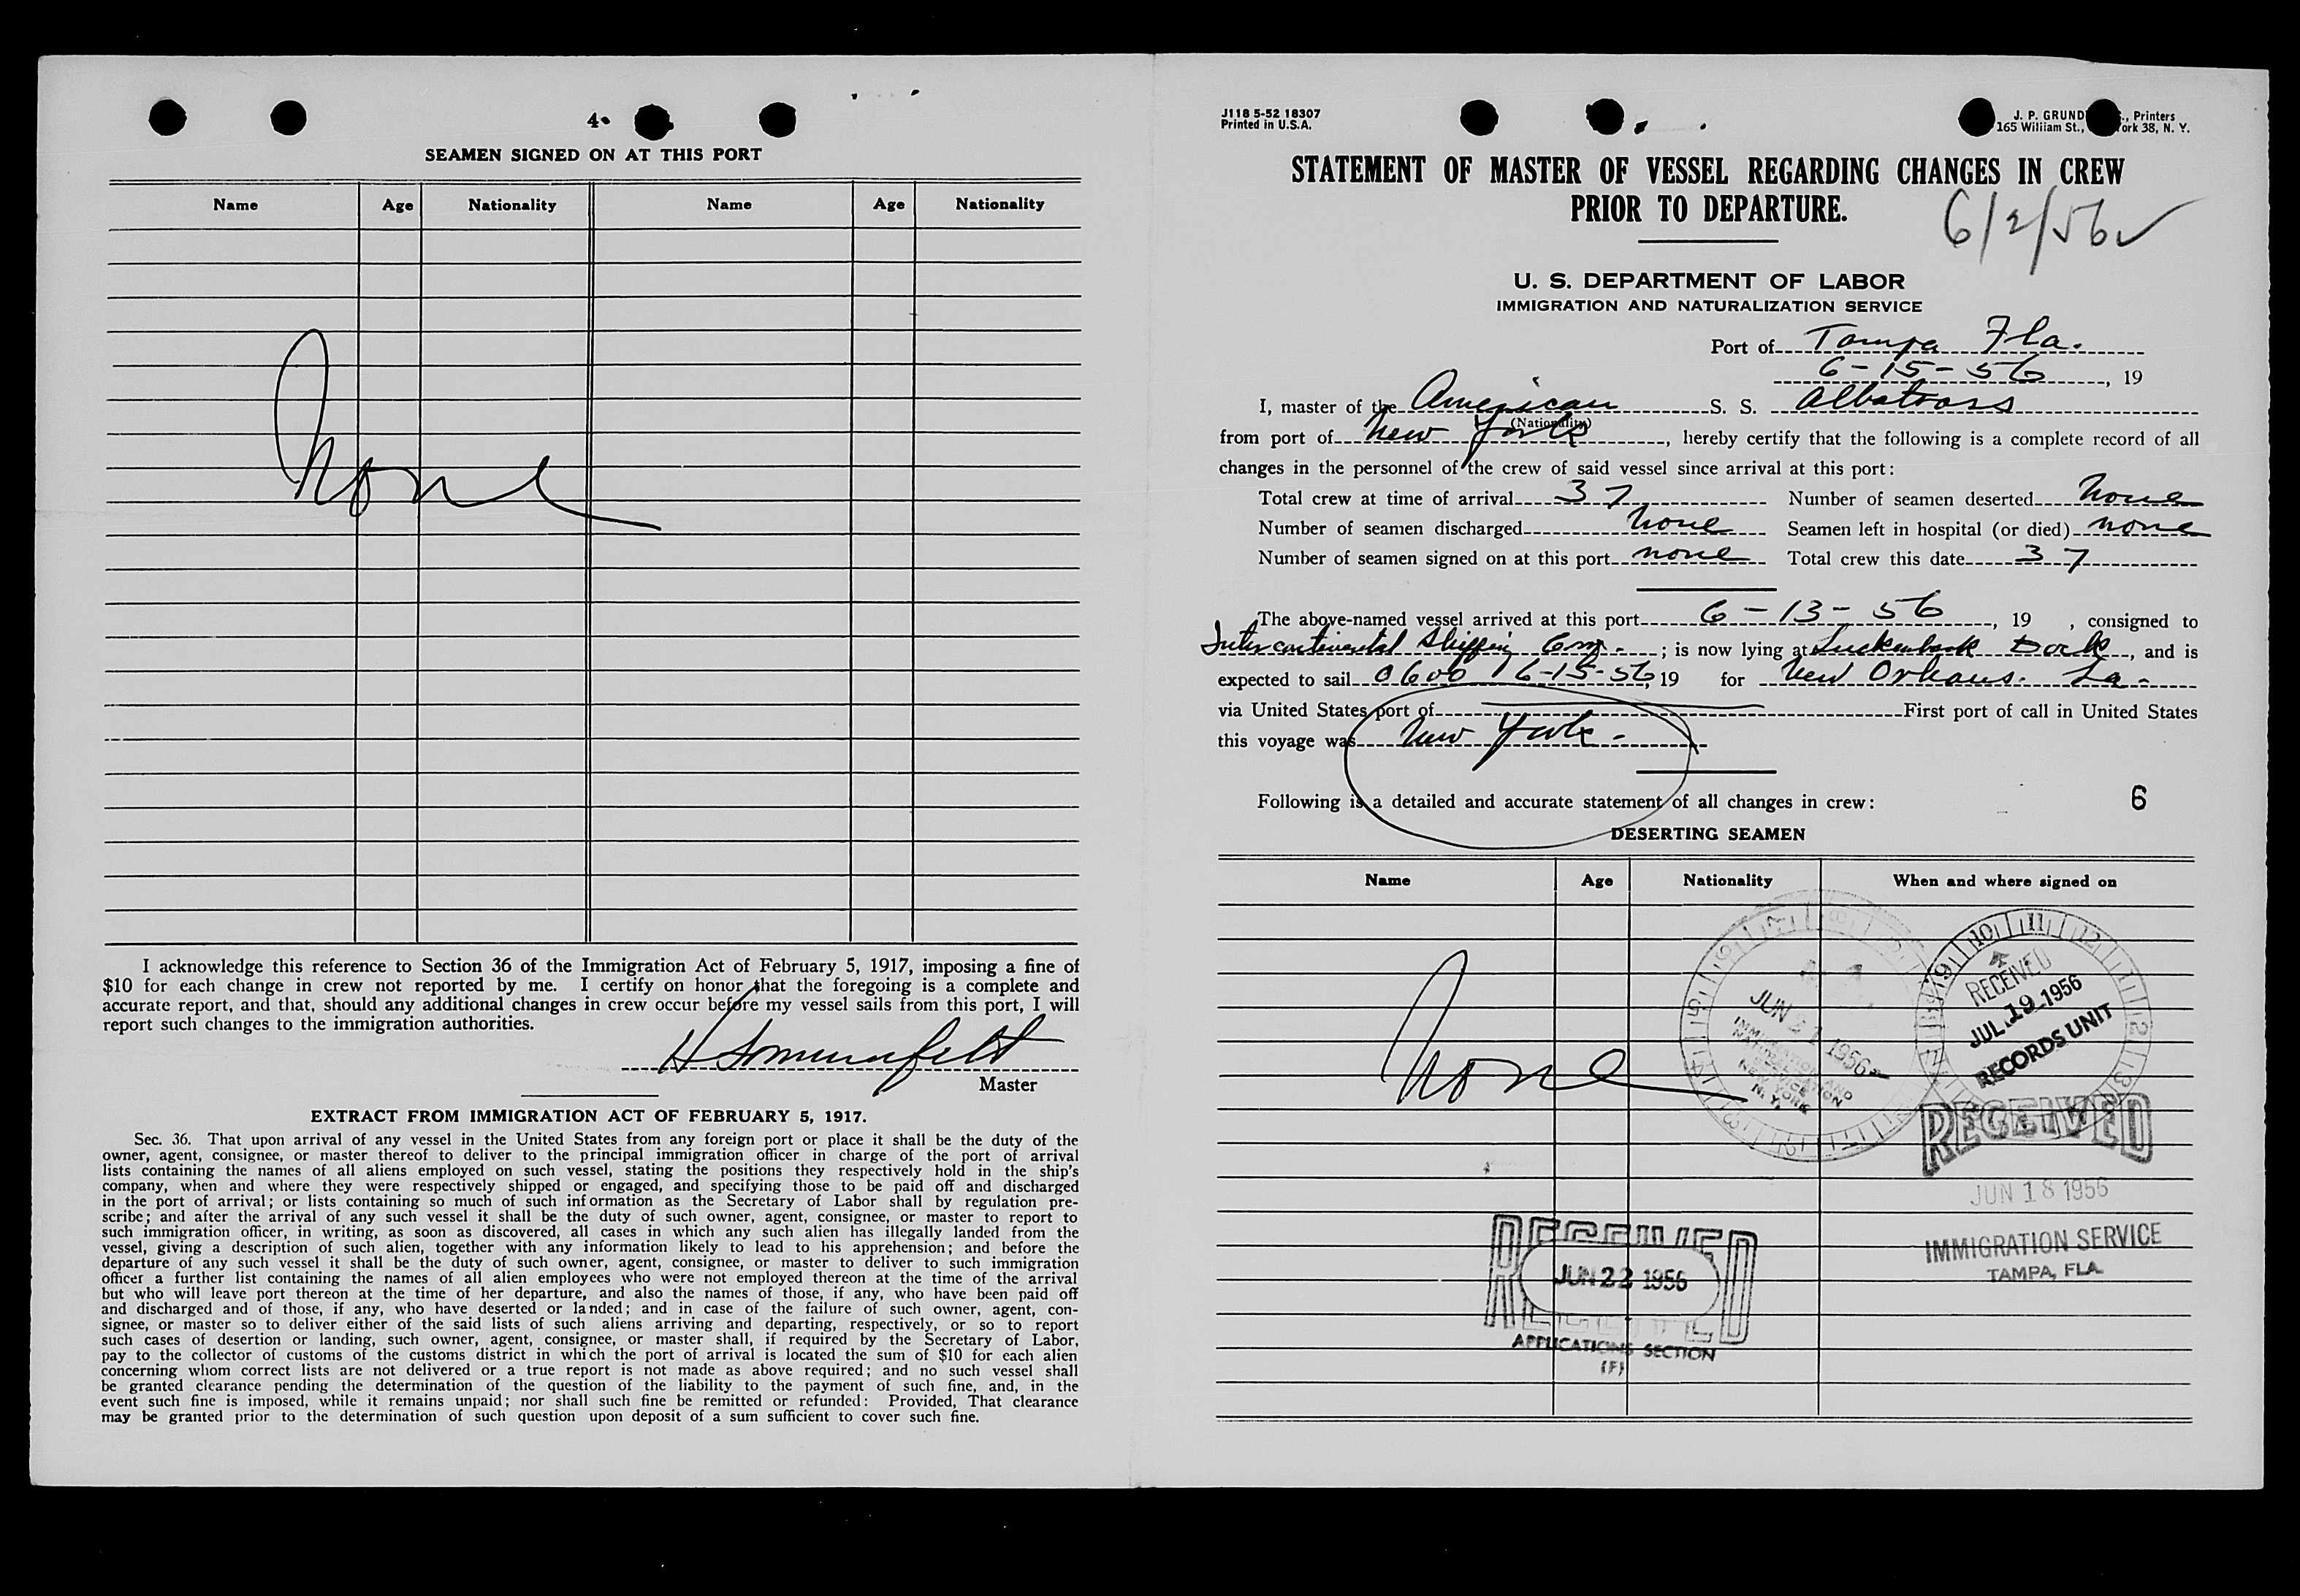 4
SEAMEN SIGNED ON AT THIS PORT
Name Age Nationality Name Age Nationality
None
I acknowledge this reference to Section 36 of the Immigration Act of February 5, 1917, imposing a fine of
$10 for each change in crew not reported by me. I certify on honor that the foregoing is a complete and
accurate report, and that, should any additional changes in crew occur before my vessel sails from this port, I will
report such changes to the immigration authorities.
H Sommerfelt
Master
EXTRACT FROM IMMIGRATION ACT OF FEBRUARY 5, 1917.
Sec. 36. That upon arrival of any vessel in the United States from any foreign port or place it shall be the duty of the
owner, agent, consignee, or master thereof to deliver to the principal immigration officer in charge of the port of arrival
lists containing the names of all aliens employed on such vessel, stating the positions they respectively hold in the ship's
company, when and where they were respectively shipped or engaged, and specifying those to be paid off and discharged
in the port of arrival; or lists containing so much of such information as the Secretary of Labor shall by regulation pre-
scribe; and after the arrival of any such vessel it shall be the duty of such owner, agent, consignee, or master to report to
such immigration officer, in writing, as soon as discovered, all cases in which any such alien has illegally landed from the
vessel, giving a description of such alien, together with any information likely to lead to his apprehension; and before the
departure of any such vessel it shall be the duty of such owner, agent, consignee, or master to deliver to such immigration
officer a further list containing the names of all alien employees who were not employed thereon at the time of the arrival
but who will leave port thereon at the time of her departure, and also the names of those, if any, who have been paid off
and discharged and of those, if any, who have deserted or landed; and in case of the failure of such owner, agent, con-
signee, or master so to deliver either of the said lists of such aliens arriving and departing, respectively, or so to report
such cases of desertion or landing, such owner, agent, consignee, or master shall, if required by the Secretary of Labor,
pay to the collector of customs of the customs district in which the port of arrival is located the sum of $10 for each alien
concerning whom correct lists are not delivered or a true report is not made as above required; and no such vessel shall
be granted clearance pending the determination of the question of the liability to the payment of such fine, and, in the
event such fine is imposed, while it remains unpaid; nor shall such fine be remitted or refunded: Provided, That clearance
may be granted prior to the determination of such question upon deposit of a sum sufficient to cover such fine.
J118 5-52 18307
Printed in U.S.A.
J. P. GRUND Printers
165 William St., ork 38, N. Y.
STATEMENT OF MASTER OF VESSEL REGARDING CHANGES IN CREW
PRIOR TO DEPARTURE.
6/2/56
U. S. DEPARTMENT OF LABOR
IMMIGRATION AND NATURALIZATION SERVICE
Port of Tampa Fla.
6-15-56, 19
I, master of the American S. S. Albatross
(Nationality)
from port of New York, hereby certify that the following is a complete record of all
changes in the personnel of the crew of said vessel since arrival at this port:
Total crew at time of arrival 37 Number of seamen deserted None
Number of seamen discharged None Seamen left in hospital (or died) none
Number of seamen signed on at this port none Total crew this date 37
The above-named vessel arrived at this port 6-13-56, 19 , consigned to
Intercontinental Shipping ; is now lying at Luckenback Dock, and is
expected to sail 0600 6-15-56, 19 for New Orleans. La.
via United States port of First port of call in United States
this voyage was New York.
Following is a detailed and accurate statement of all changes in crew:
6
DESERTING SEAMEN
Name Age Nationality When and where signed on
None
JUN 21 1956
IMMIGRATION AND
NATURALIZATION
SERVICE
NEW YORK
N. Y.
RECEIVED
JUL 19 1956
RECORDS UNIT
RECEIVED
JUN 18 1956
IMMIGRATION SERVICE
TAMPA, FLA.
RECEIVED
JUN 22 1956
APPLICATIONS SECTION
(F)